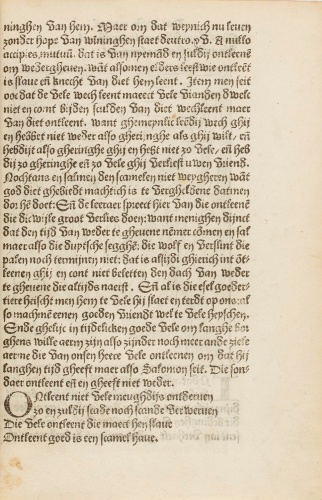 ninghen van hem. Maer om dat weynich nu leuen
zonder hope van wininghen staet deutro. xv. A nullo
accipies mutuū. dat is van nyemād en suldij ontleenē
om wederghe­uen. wāt alsomen elders leest wie ontleent
is slaue eñ knecht van diet hem leent. Item men seit
ooc dat de vele wech leent maect vele vianden d wele
niet en comt biden sculden van diet wechleent maer
van diet ontleent. want ghij leedij wech ghij
en hebbet niet weder also gheringhe als ghij wilt, eñ
hebdijt also gheringhe ghij en hebt niet zo vele, eñ heb
dij zo gheringhe eñ zo vele ghij verliest uwen vriend.
Nochtans en salmen den scamelen niet weygheren wāt
god diet ghebiedt machtich is te verghelden datmen
dor hē doet: Eñ de leeraer spreect hier van die ontleenē
die dicwijle groot verlies doen: want menighen dijnct
dat den tijd van weder te gheuene nēmet cōmen en sal
maer also die duytsche segghē: die wolf en verslint die
palen noch terminen niet: dat is alsidij ghierich int ōt
leenen ghij en cont niet beletten den dach van weder
te gheuene die altijds naerst. Eñ al is die esel goeder
tier heischt men hem te vele hij slaet en terdt op ons al
so machmē eenen goeden vriendt wel te vele heyschen.
Ende ghelijc in tijdelicken goede vele om langhe bor
ghens wille aerm zijn also zijnder noch meer ande ziele
aerme die van onsen heere vele ontleenen om dat hij
langhen tijd gheeft maer also Salomon seit. Die son
daer ontleent eñ en gheeft niet weder.
Ontleent niet vele meughdijs ontberen
zo en zuldij scade noch scande verweruen
Die vele ontleent die maect hem slaue
Ontleent goed is een scamel haue.